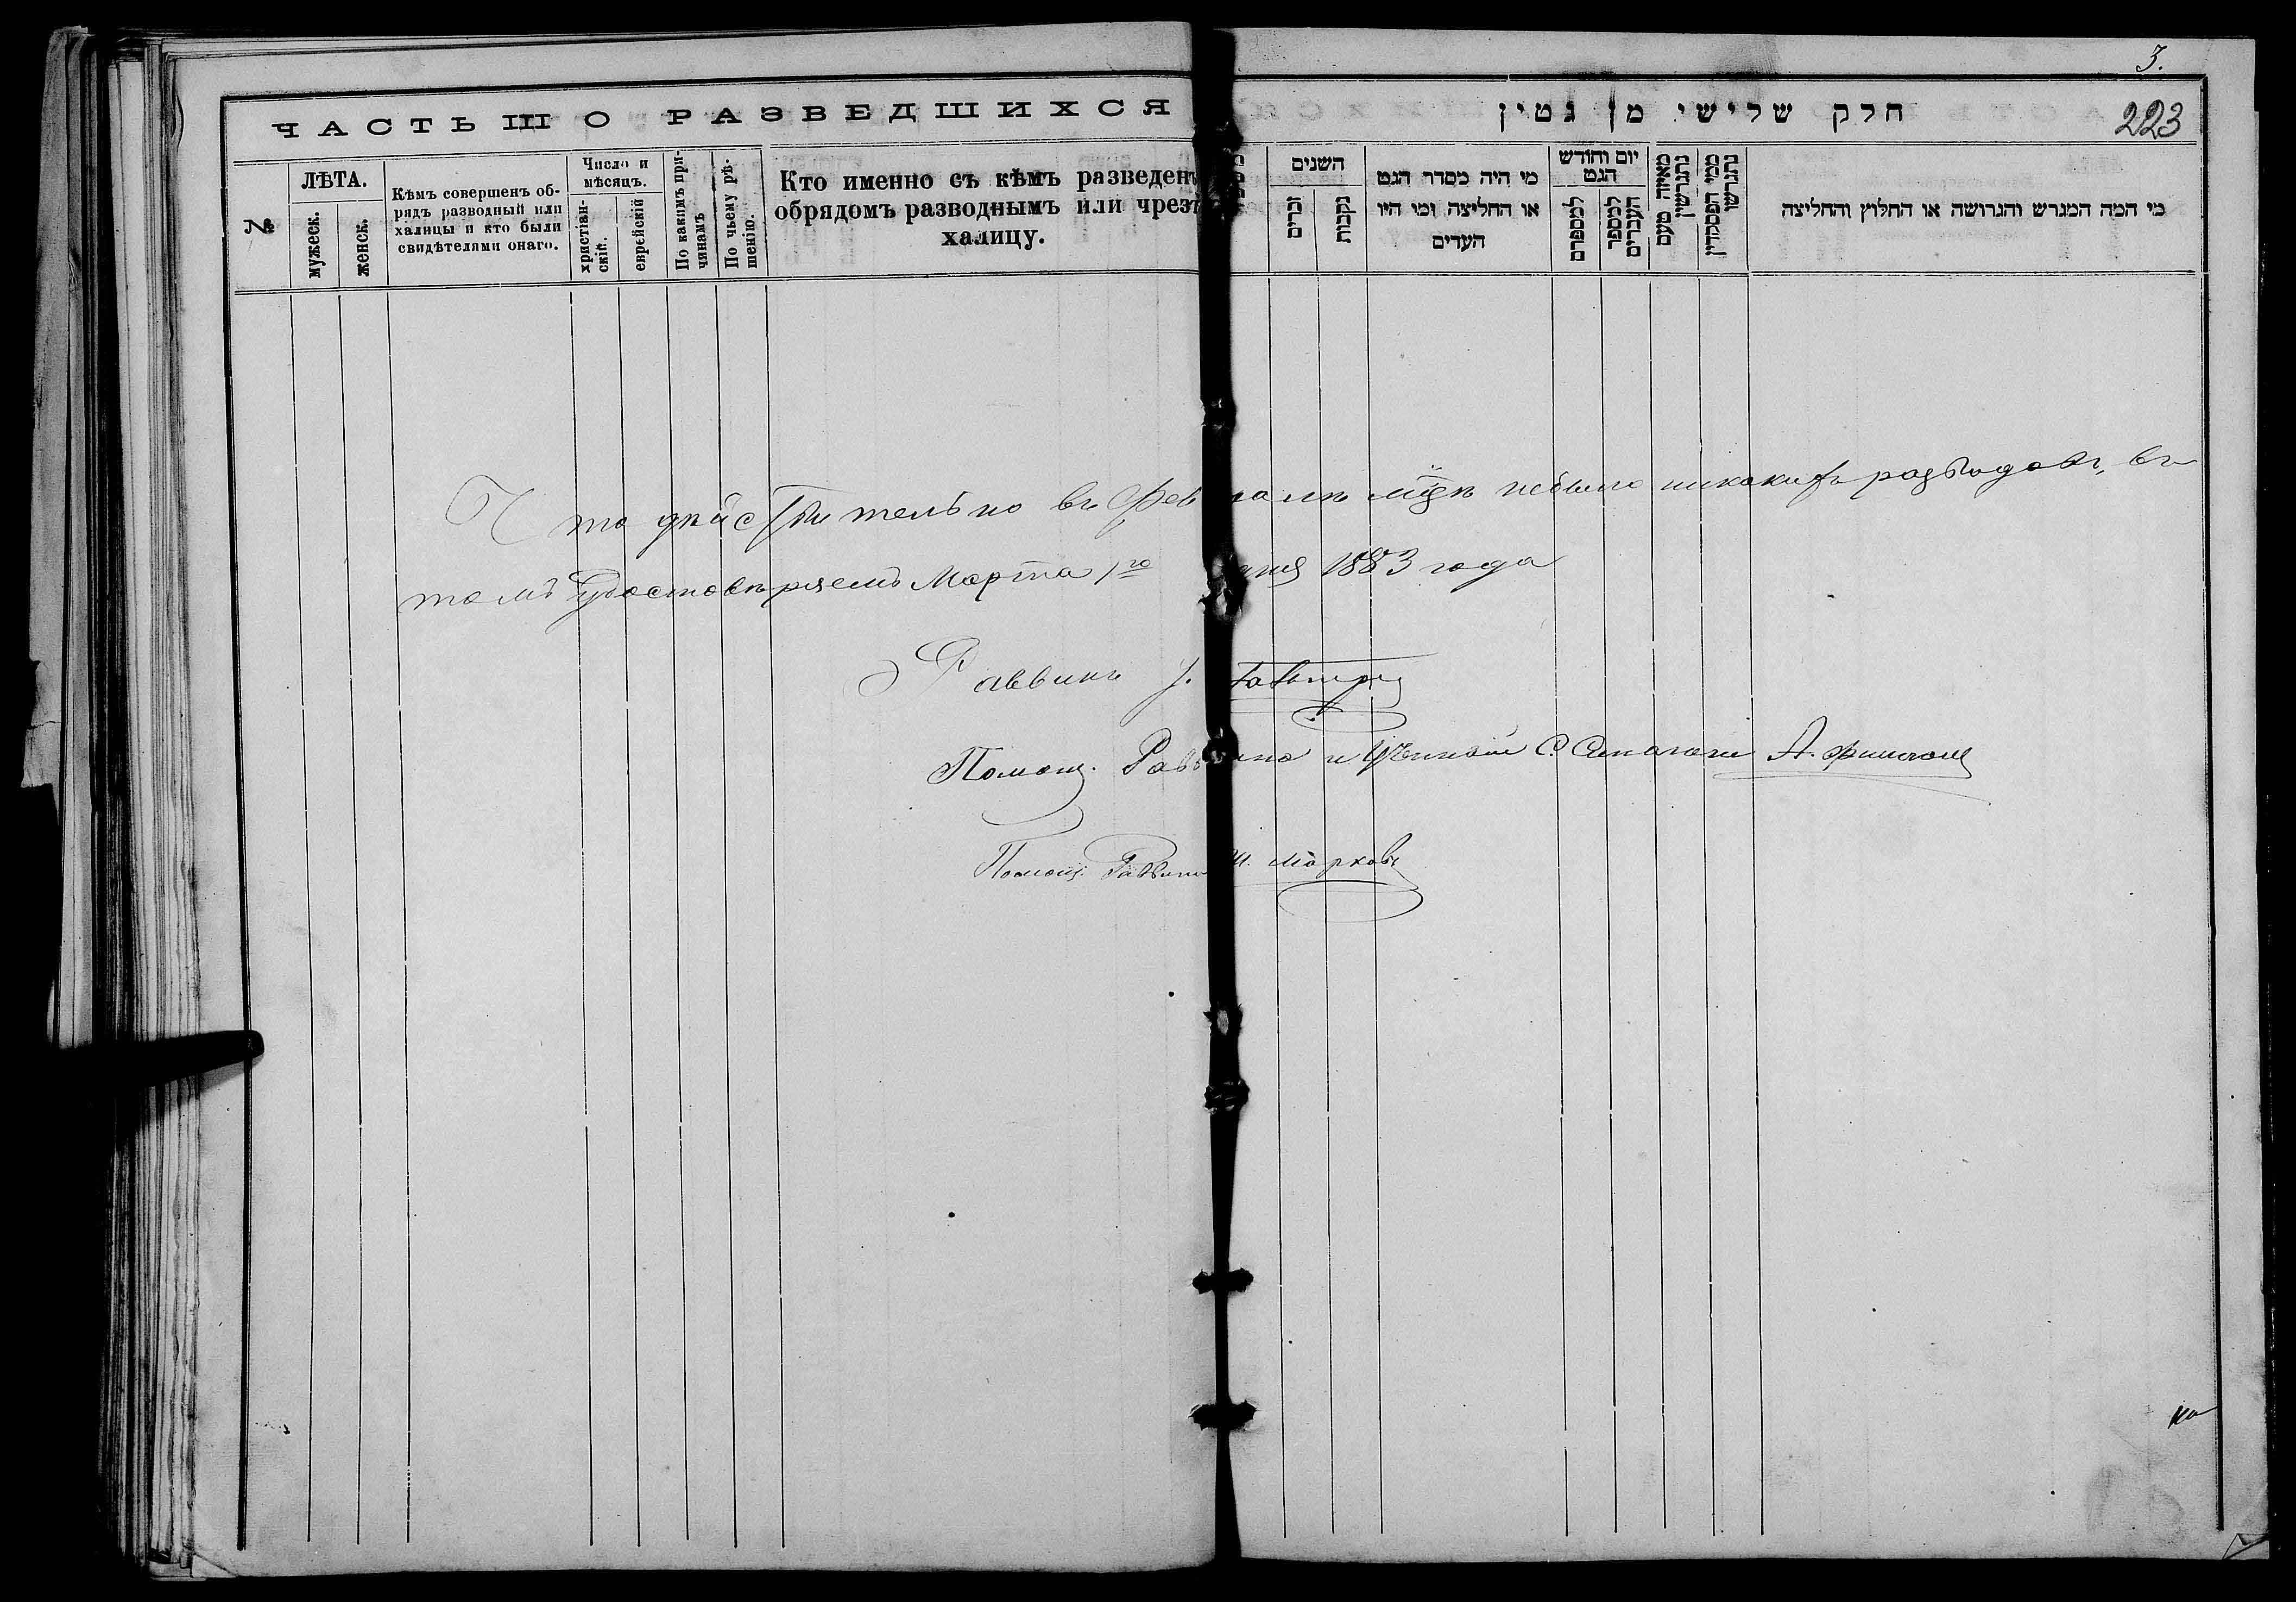 3.
ЧАСТЬ III О РАЗВЕДШИХСЯ
חלק שלישי מן גטין
223
№
ЛѢТА.
мужеск.
женск.
Кѣмъ совершенъ об-
рядъ разводный или
халицы и кто были
свидѣтелями онаго.
Число и
мѣсяцъ.
христіан-
скій.
еврейскій
По какимъ при-
чинамъ
По чьему рѣ-
шенію.
Кто именно съ кѣмъ разведенъ
обрядомъ разводнымъ или чрезъ
халицу.
השנים
זכרים
נקבות
מי היה מסדר הגט
או החליצה ומי היו
העדים
יום וחודש
הגט
למספרם
למספר
העברים
מאיזה טעם
נתגרשין
ממי הפסמדין
נתגרשו
מי המה המגרש והגרושה או החלוץ והחליצה
Что дѣйствительно въ Февралѣ м͠цѣ небыло никакихъ разводовъ, въ
томъ удостовѣряемъ Марта 1го дня 1883 года
Раввинъ
Помощ. Раввина и Ученый С. Синагоги А.
Помощ. Раввина Ш. Марковъ